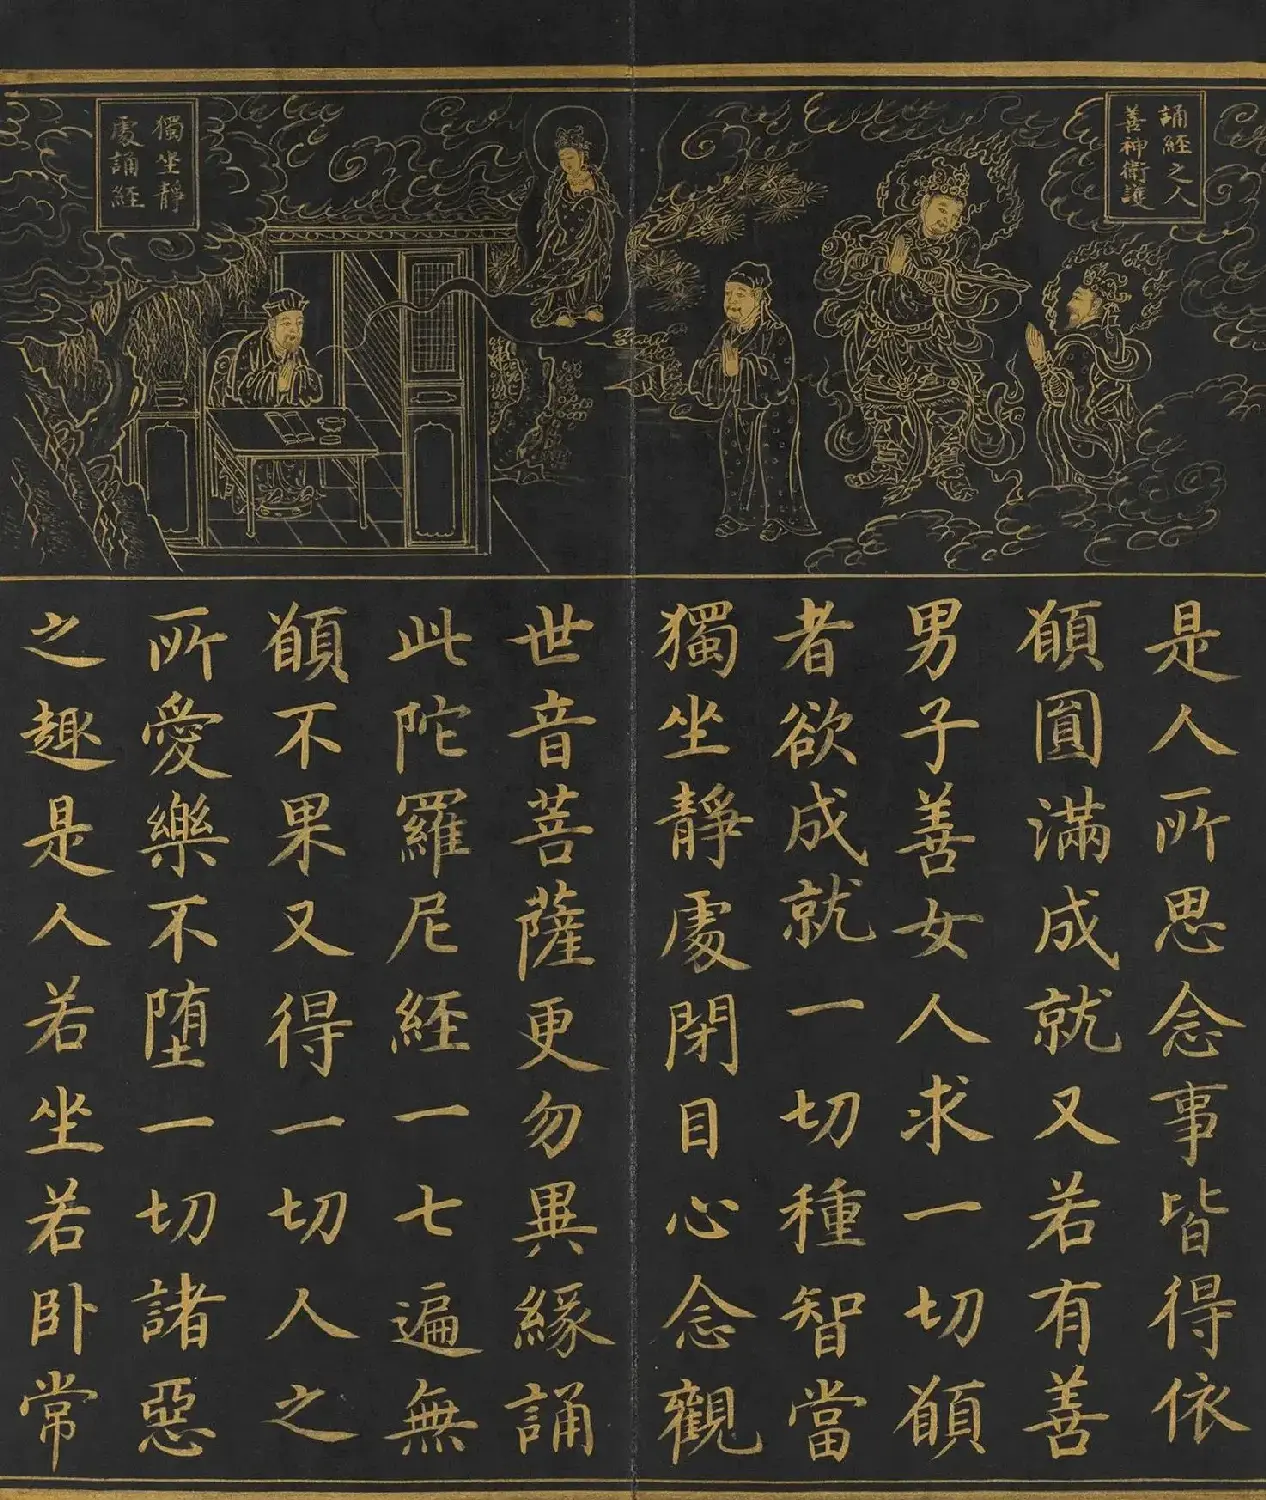 誦經之人
善神衛護
獨坐靜
處誦經
是人所思念事皆得依
願圓滿成就又若有善
男子善女人求一切願
者欲成就一切種智當
獨坐靜處閉目心念觀
世音菩薩更勿異緣誦
此陀羅尼經一七遍無
願不果又得一切人之
所愛樂不堕一切諸惡
之趣是人若坐若卧常